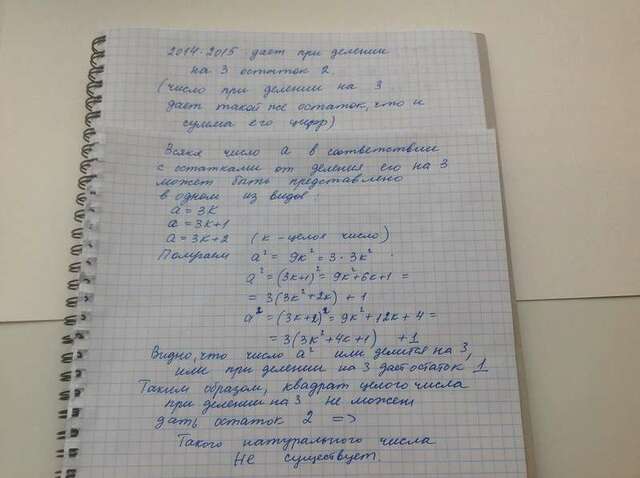 2014·2015 дает при делении
на 3 остаток 2.
(число при делении на 3
дает такой же остаток, что и
сумма его цифр)
Всякое число a в соответствии
с остатками от деления его на 3
может быть представлено
в одном из видов:
a = 3k
a = 3k+1
a = 3k+2 (k - целое число)
Получаем a² = 9k² = 3·3k²
a² = (3k+1)² = 9k²+6k+1 =
= 3(3k²+2k) + 1
a² = (3k+2)² = 9k²+12k+4 =
= 3(3k²+4k+1) +1
Видно, что число a² или делится на 3,
или при делении на 3 дает остаток 1
Таким образом, квадрат целого числа
при делении на 3 не может
дать остаток 2 =>
Такого натурального числа
не существует.